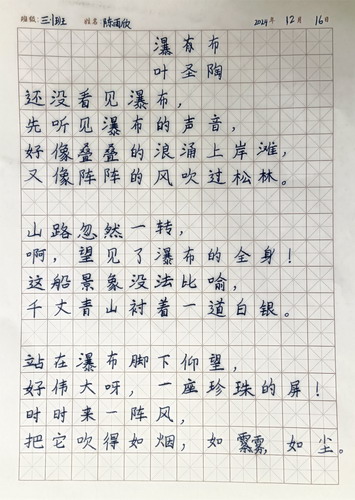 班级：三(1)班 姓名：陈雨欣 2024年12月16日
瀑布布
叶圣陶
还没看见瀑布，
先听见瀑布的声音，
好像叠叠的浪涌上岸滩，
又像阵阵的风吹过松林。
山路忽然一转，
啊，望见了瀑布的全身！
这船景象没法比喻，
千丈青山衬着一道白银。
站在瀑布脚下仰望，
好伟大呀，一座珍珠的屏！
时时来一阵风，
把它吹得如烟，如雾，如尘。